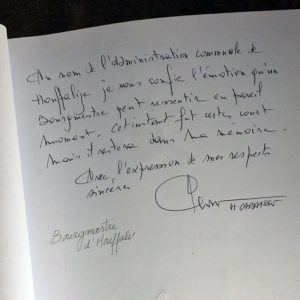 Au nom de l'administration communale de
Houffalize je vous confie l'émotion qu'un
Bourgmestre peut ressentir en pareil
moment. Cet instant fut certes court
mais il restera dans ma mémoire.
Avec l'expression de mes respects
sincères
Bourgmestre
d'Houffalize